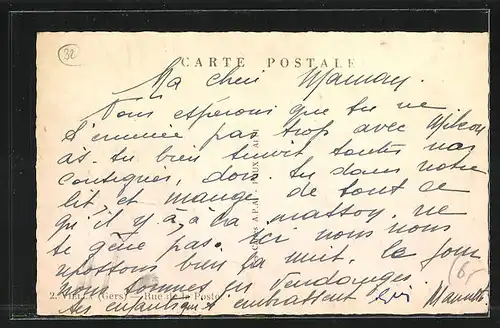 32
CARTE POSTALE
Ma cher Maman.
Nous espérons que tu ne
t'ennuie pas trop avec
as-tu bien suivit toutes nos
consignes, dors-tu dans notre
lit, et mange de tout ce
qu'il y a à la maison. ne
te gêne pas. Ici nous nous
reposons bien la nuit. le jour
nous sommes en Vendanges.
tes enfants qui t'embrassent
2. VIELLA (Gers) — Rue de la Poste